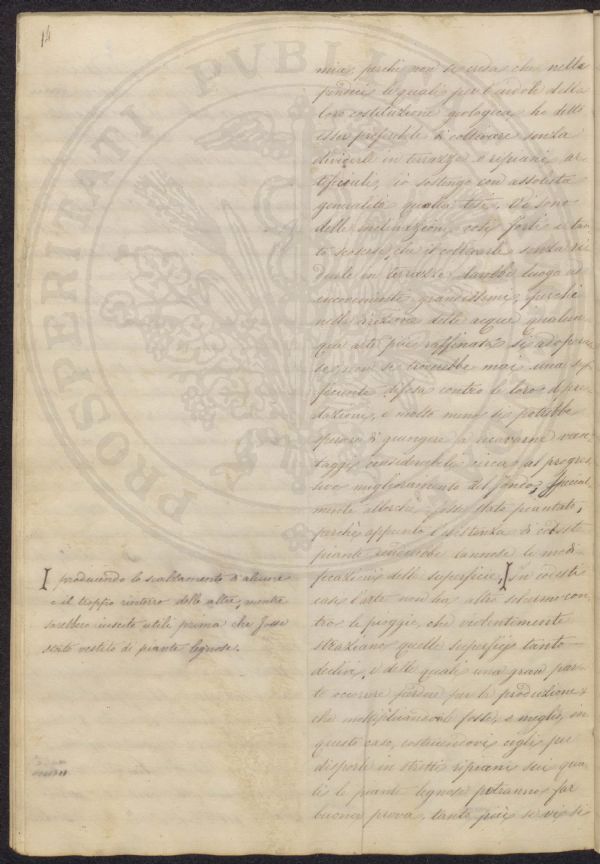 14
mia, perchè non si creda che nella
pendici le quali per l'indole della
loro costituzione geologica ho detto
esser preferibile di coltivare senza
dividerle in terrazze o ripiani ar-
tificiali, io sostengo con assoluta
generalità questa tesi. Vi sono
delle inclinazioni così forti e tan-
to scoscese, che il coltivarle senza ri-
durle in terrazze darebbe luogo ad
inconvenienti grandissimi; perchè
nella direzione delle acque qualun-
que arte più raffinata si adoperas-
se, non si troverebbe mai una suf-
ficiente difesa contro le loro depre-
dazioni, e molto meno si potrebbe
sperare di giungere a ricavarne van-
taggi considerabili circa al progres-
sivo miglioramento del fondo, special-
mente allorchè fosse stato piantato,
perchè appunto l'esistenza di codeste
piante renderebbe dannose le modi-
ficazioni della superficie, In codesti
casi l'arte non ha altro schermo con-
tro le pioggie, che violentemente
straziano quelle superfici tanto
declivi, e delle quali una gran par-
te occorre perdere per la produzione
che moltiplicandovi fosse, o meglio, in
questo caso, costruendovi cigli per
disporle in stretti ripiani sui qua-
li le piante legnose potranno far
buona prova, tanto più se vi si
producendo lo scalzamento di alcune
e il troppo rinterro delle altre, mentre
sarebbero riescite utili prima che fosse
stato vestito di piante legnose.
PROSPERITATI PVBLICAE